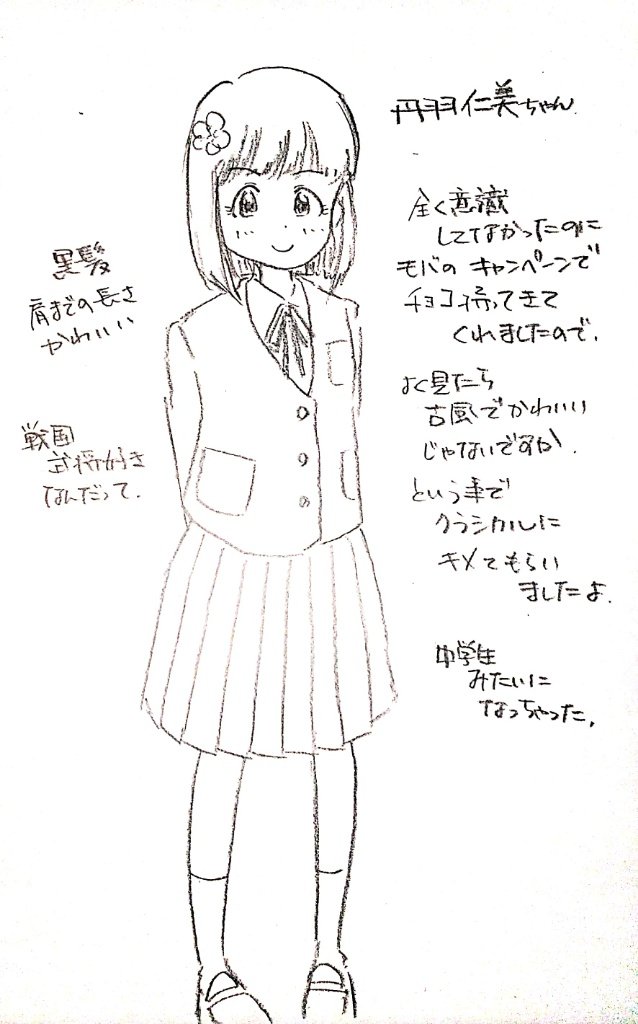 丹羽仁美ちゃん
全く意識
してなかったのに
モバのキャンペーンで
チョコ持ってきて
くれましたので.
よく見たら
古風でかわいい
じゃないですか.
という事で
クラシカルに
キメてもらい
ましたよ.
中学生
みたいに
なっちゃった.
黒髪
肩までの長さ
かわいい
戦国
武将好き
なんだって.